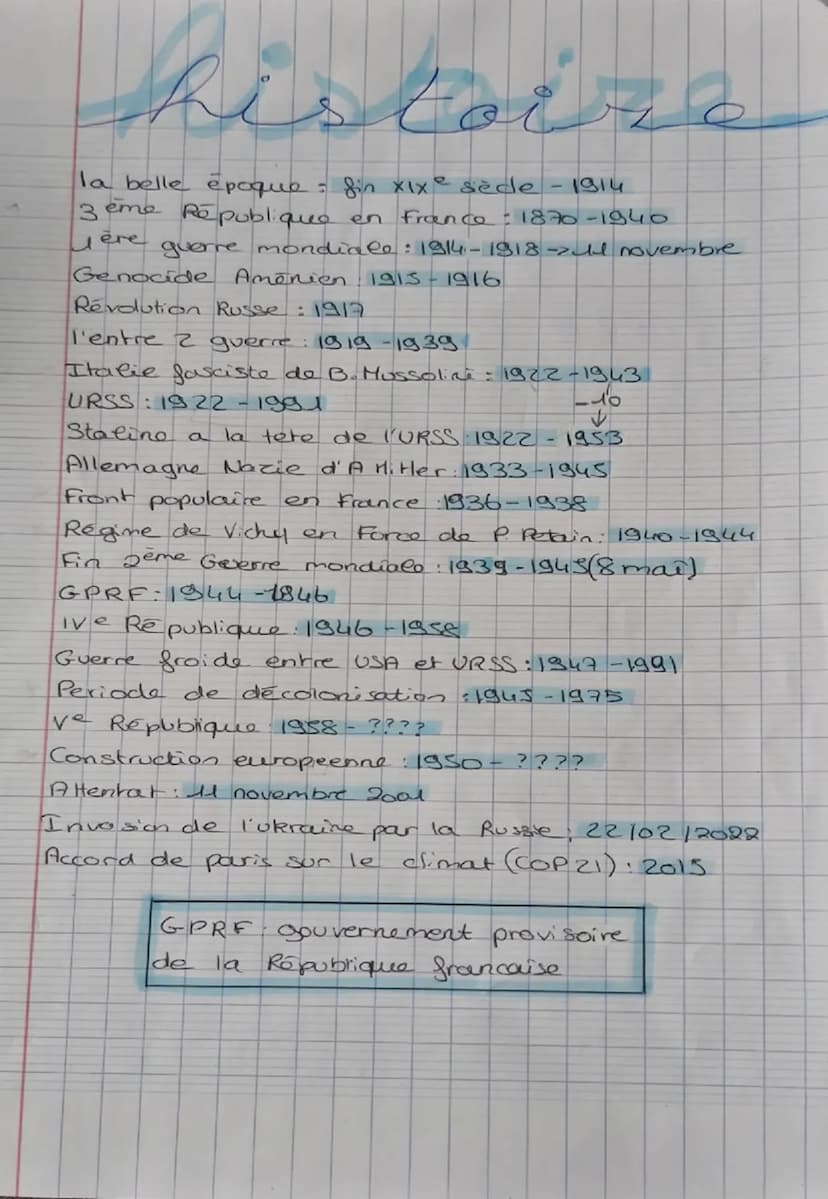 histoire
la belle époque : fin XIXe siècle - 1914
3ème République en France : 1870-1940
1ère guerre mondiale : 1914-1918 -> 11 novembre
Genocide Aménien : 1915-1916
Révolution Russe : 1917
l'entre 2 guerre : 1919-1939
Italie fasciste de B. Mussolini : 1922-1943
URSS : 1922-1991
-10
↓
Staline a la tete de l'URSS : 1922-1953
Allemagne Nazie d'A Hitler : 1933-1945
Front populaire en France : 1936-1938
Régime de Vichy en Force de P. Petain : 1940-1944
Fin 2ème Guerre mondiale : 1939-1945 (8 mai)
GPRF : 1944-1846
IVe République : 1946-1958
Guerre froide entre USA et URSS : 1947-1991
Periode de décolonisation : 1945-1975
Ve République : 1958-????
Construction europeenne : 1950-????
Attentat : 11 novembre 2001
Invasion de l'Ukraine par la Russie : 22/02/2022
Accord de paris sur le climat (COP21) : 2015
GPRF : gouvernement provisoire
de la République francaise